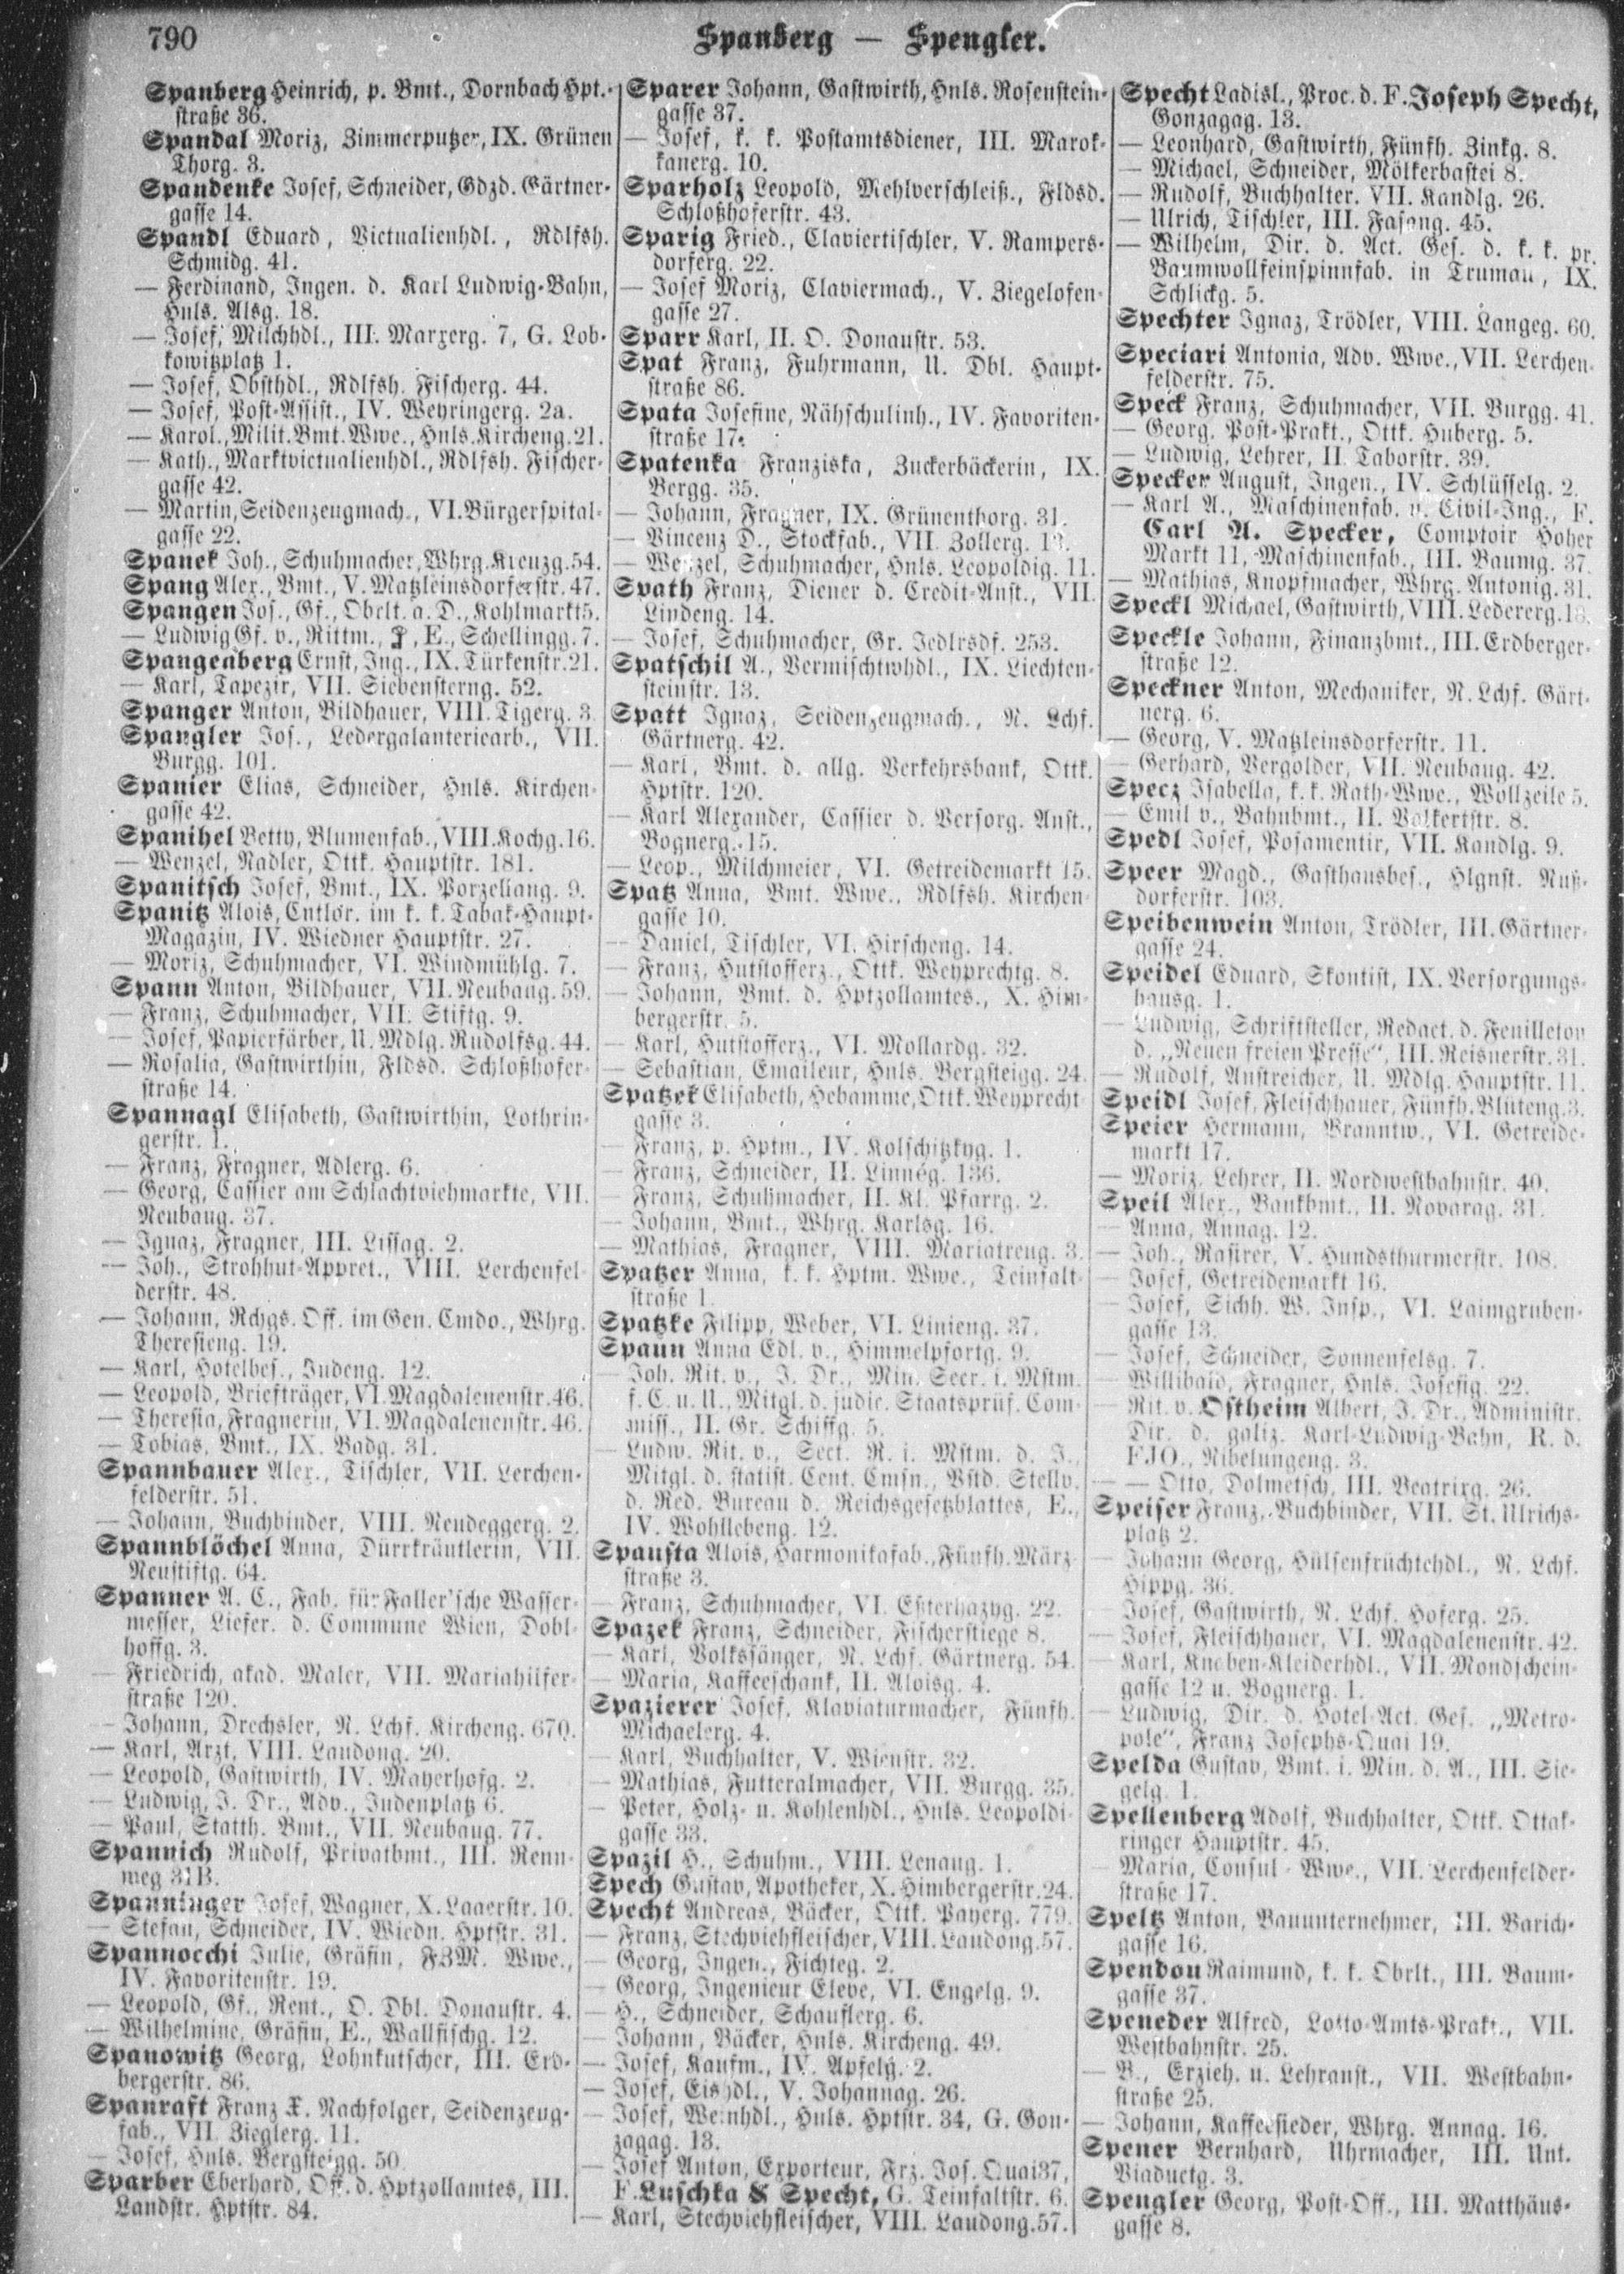 790
Spanberg — Spengler.
Spanberg Heinrich, p. Bmt., Dornbach Hpt.-
straße 36.
Spandal Moriz, Zimmerputzer, IX. Grünen
Thorg. 3.
Spandenke Josef, Schneider, Gdzd. Gärtner-
gasse 14.
Spandl Eduard, Victualienhdl., Rdlfsh.
Schmidg. 41.
— Ferdinand, Ingen. d. Karl Ludwig-Bahn,
Hnls. Alsg. 18.
— Josef, Milchhdl., III. Marxerg. 7, G. Lob-
kowitzplatz 1.
— Josef, Obsthdl., Rdlfsh. Fischerg. 44.
— Josef, Post-Assist., IV. Weyringerg. 2a.
— Karol., Milit. Bmt. Wwe., Hnls. Kircheng. 21.
— Kath., Marktvictualienhdl., Rdlfsh. Fischer-
gasse 42.
— Martin, Seidenzeugmach., VI. Bürgerspital-
gasse 22.
Spanek Joh., Schuhmacher, Whrg. Kreuzg. 54.
Spang Alex., Bmt., V. Matzleinsdorferstr. 47.
Spangen Jos., Gf., Obrlt. a. D., Kohlmarkt 5.
— Ludwig Gf. v., Rittm., E., Schellingg. 7.
Spangenberg Ernst, Ing., IX. Türkenstr. 21.
— Karl, Tapezir, VII. Siebensterng. 52.
Spanger Anton, Bildhauer, VIII. Tigerg. 3.
Spangler Jos., Ledergalanteriearb., VII.
Burgg. 101.
Spanier Elias, Schneider, Hnls. Kirchen-
gasse 42.
Spanihel Betty, Blumenfab., VIII. Kochg. 16.
— Wenzel, Nadler, Ottk. Hauptstr. 181.
Spanitsch Josef, Bmt., IX. Porzellang. 9.
Spanitz Alois, Cntlor. im k. k. Tabak-Haupt-
Magazin, IV. Wiedner Hauptstr. 27.
— Moriz, Schuhmacher, VI. Windmühlg. 7.
Spann Anton, Bildhauer, VII. Neubaug. 59.
— Franz, Schuhmacher, VII. Stiftg. 9.
— Josef, Papierfärber, U. Mdlg. Rudolfsg. 44.
— Rosalia, Gastwirthin, Fldsd. Schloßhofer-
straße 14.
Spannagl Elisabeth, Gastwirthin, Lothrin-
gerstr. 1.
— Franz, Fragner, Adlerg. 6.
— Georg, Cassier am Schlachtviehmarkte, VII.
Neubaug. 37.
— Ignaz, Fragner, III. Lissag. 2.
— Joh., Strohhut-Appret., VIII. Lerchenfel-
derstr. 48.
— Johann, Rchgs. Off. im Gen. Cmdo., Whrg.
Theresieng. 19.
— Karl, Hotelbes., Judeng. 12.
— Leopold, Briefträger, VI. Magdalenenstr. 46.
— Theresia, Fragnerin, VI. Magdalenenstr. 46.
— Tobias, Bmt., IX. Badg. 31.
Spannbauer Alex., Tischler, VII. Lerchen-
felderstr. 51.
— Johann, Buchbinder, VIII. Neudeggerg. 2.
Spannblöchel Anna, Dürrkräutlerin, VII.
Neustiftg. 64.
Spanner A. C., Fab. für Faller'sche Wasser-
messer, Liefer. d. Commune Wien, Dobl-
hoffg. 3.
— Friedrich, akad. Maler, VII. Mariahilfer-
straße 120.
— Johann, Drechsler, N. Lchf. Kircheng. 670.
— Karl, Arzt, VIII. Laudong. 20.
— Leopold, Gastwirth, IV. Mayerhofg. 2.
— Ludwig, J. Dr., Adv., Judenplatz 6.
— Paul, Statth. Bmt., VII. Neubaug. 77.
Spannich Rudolf, Privatbmt., III. Renn-
weg 31B.
Spanninger Josef, Wagner, X. Lagerstr. 10.
— Stefan, Schneider, IV. Wiedn. Hptstr. 31.
Spannocchi Julie, Gräfin, FZM. Wwe.,
IV. Favoritenstr. 19.
— Leopold, Gf., Rent., O. Dbl. Donaustr. 4.
— Wilhelmine, Gräfin, E., Wallfischg. 12.
Spanowitz Georg, Lohnkutscher, III. Erd-
bergerstr. 86.
Spanraft Franz X. Nachfolger, Seidenzeug-
fab., VII. Zieglerg. 11.
— Josef, Hnls. Bergsteigg. 50.
Sparber Eberhard, Off. d. Hptzollamtes, III.
Landstr. Hptstr. 84.
Sparer Johann, Gastwirth, Hnls. Rosenstein-
gasse 37.
— Josef, k. k. Postamtsdiener, III. Marok-
kanerg. 10.
Sparholz Leopold, Mehlverschleiß., Fldsd.
Schloßhoferstr. 43.
Sparig Fried., Claviertischler, V. Rampers-
dorferg. 22.
— Josef Moriz, Claviermach., V. Ziegelofen-
gasse 27.
Sparr Karl, II. O. Donaustr. 53.
Spat Franz, Fuhrmann, U. Dbl. Haupt-
straße 86.
Spata Josefine, Nähschulinh., IV. Favoriten-
straße 17.
Spatenka Franziska, Zuckerbäckerin, IX.
Bergg. 35.
— Johann, Fragner, IX. Grünenthorg. 31.
— Vincenz D., Stockfab., VII. Zollerg.
— Wenzel, Schuhmacher, Hnls. Leopoldig. 11.
Spath Franz, Diener d. Credit-Anst., VII.
Lindeng. 14.
— Josef, Schuhmacher, Gr. Jedlrsdf. 253.
Spatschil A., Vermischtwhdl., IX. Liechten-
steinstr. 13.
Spatt Ignaz, Seidenzeugmach., N. Lchf.
Gärtnerg. 42.
— Karl, Bmt. d. allg. Verkehrsbank, Ottk.
Hptstr. 120.
— Karl Alexander, Cassier d. Versorg. Anst.,
Bognerg. 15.
— Leop., Milchmeier, VI. Getreidemarkt 15.
Spatz Anna, Bmt. Wwe., Rdlfsh. Kirchen-
gasse 10.
— Daniel, Tischler, VI. Hirscheng. 14.
— Franz, Hutstofferz., Ottk. Weyprechtg. 8.
— Johann, Bmt. d. Hptzollamtes., X. Him-
bergerstr. 5.
— Karl, Hutstofferz., VI. Mollardg. 32.
— Sebastian, Emaileur, Hnls. Bergsteigg. 24.
Spatzek Elisabeth, Hebamme, Ottk. Weyprecht-
gasse 3.
— Franz, p. Hptm., IV. Kolschitzkyg. 1.
— Franz, Schneider, II. Linnég. 136.
— Franz, Schuhmacher, II. Kl. Pfarrg. 2.
— Johann, Bmt., Whrg. Karlsg. 16.
— Mathias, Fragner, VIII. Mariatreug. 3.
Spatzer Anna, k. k. Hptm. Wwe., Teinfalt-
straße 1.
Spatzke Filipp, Weber, VI. Linieng. 37.
Spaun Anna Edl. v., Himmelpfortg. 9.
— Joh. Rit. v., J. Dr., Min. Secr. i. Mstm.
f. C. u. U., Mitgl. d. judic. Staatsprüf. Com-
miss., II. Gr. Schiffg. 5.
— Ludw. Rit. v., Sect. R. i. Mstm. d. J.,
Mitgl. d. statist. Cent. Cmsn., Vstd. Stellv.
d. Red. Bureau d. Reichsgesetzblattes, E.,
IV. Wohllebeng. 12.
Spausta Alois, Harmonikafab., Fünfh. März-
straße 3.
— Franz, Schuhmacher, VI. Eßterhazyg. 22.
Spazek Franz, Schneider, Fischerstiege 8.
— Karl, Volkssänger, N. Lchf. Gärtnerg. 54.
— Maria, Kaffeeschank, II. Aloisg. 4.
Spazierer Josef, Klaviaturmacher, Fünfh.
Michaelerg. 4.
— Karl, Buchhalter, V. Wienstr. 32.
— Mathias, Futteralmacher, VII. Burgg. 35.
— Peter, Holz- u. Kohlenhdl., Hnls. Leopoldi-
gasse 33.
Spazil H., Schuhm., VIII. Lenaug. 1.
Spech Gustav, Apotheker, X. Himbergerstr. 24.
Specht Andreas, Bäcker, Ottk. Payerg. 779.
— Franz, Stechviehfleischer, VIII. Laudong. 57.
— Georg, Ingen., Fichteg. 2.
— Georg, Ingenieur Eleve, VI. Engelg. 9.
— H., Schneider, Schauflerg. 6.
— Johann, Bäcker, Hnls. Kircheng. 49.
— Josef, Kaufm., IV. Apfelg. 2.
— Josef, Eishdl., V. Johannag. 26.
— Josef, Weinhdl., Hnls. Hptstr. 34, G. Gon-
zagag. 13.
— Josef Anton, Exporteur, Frz. Jos. Quai 37,
F. Luschka & Specht, G. Teinfaltstr. 6.
— Karl, Stechviehfleischer, VIII. Laudong. 57.
Specht Ladisl., Proc. d. F. Joseph Specht,
Gonzagag. 13.
— Leonhard, Gastwirth, Fünfh. Zinkg. 8.
— Michael, Schneider, Mölkerbastei 8.
— Rudolf, Buchhalter. VII. Kandlg. 26.
— Ulrich, Tischler, III. Fasang. 45.
— Wilhelm, Dir. d. Act. Ges. d. k. k. pr.
Baumwollfeinspinnfab. in Trumau, IX.
Schlickg. 5.
Spechter Ignaz, Trödler, VIII. Langeg. 60.
Speciari Antonia, Adv. Wwe., VII. Lerchen-
felderstr. 75.
Speck Franz, Schuhmacher, VII. Burgg. 41.
— Georg. Post-Prakt., Ottk. Huberg. 5.
— Ludwig, Lehrer, II. Taborstr. 39.
Specker August, Ingen., IV. Schlüsselg. 2.
— Karl A., Maschinenfab. u. Civil-Ing., F.
Carl A. Specker, Comptoir Hoher
Markt 11, Maschinenfab., III. Baumg. 37.
— Mathias, Knopfmacher, Whrg. Antonig. 31.
Speckl Michael, Gastwirth, VIII. Ledererg.
Speckle Johann, Finanzbmt., III. Erdberger-
straße 12.
Speckner Anton, Mechaniker, N. Lchf. Gärt-
nerg. 6.
— Georg, V. Matzleinsdorferstr. 11.
— Gerhard, Vergolder, VII. Neubaug. 42.
Specz Isabella, k. k. Rath-Wwe., Wollzeile 5.
— Emil v., Bahnbmt., II. Volkertstr. 8.
Spedl Josef, Posamentir, VII. Kandlg. 9.
Speer Magd., Gasthausbes., Hlgnst. Nuß-
dorferstr. 103.
Speibenwein Anton, Trödler, III. Gärtner-
gasse 24.
Speidel Eduard, Skontist, IX. Versorgungs-
hausg. 1.
— Ludwig, Schriftsteller, Redact. d. Feuilleton
d. „Neuen freien Presse“, III. Reisnerstr. 31.
— Rudolf, Anstreicher, U. Mdlg. Hauptstr. 11.
Speidl Josef, Fleischhauer, Fünfh. Blüteng. 3.
Speier Hermann, Branntw., VI. Getreide-
markt 17.
— Moriz, Lehrer, II. Nordwestbahnstr. 40.
Speil Alex., Bankbmt., II. Novarag. 31.
— Anna, Annag. 12.
— Joh., Rasirer, V. Hundsthurmerstr. 108.
— Josef, Getreidemarkt 16.
— Josef, Sichh. W. Insp., VI. Laimgruben-
gasse 13.
— Josef, Schneider, Sonnenfelsg. 7.
— Willibald, Fragner, Hnls. Josefig. 22.
— Rit. v. Ostheim Albert, J. Dr., Administr.
Dir. d. galiz. Karl-Ludwig-Bahn, R. d.
FJO., Nibelungeng. 3.
— — Otto, Dolmetsch, III. Beatrixg. 26.
Speiser Franz, Buchbinder, VII. St. Ulrichs-
platz 2.
— Johann Georg, Hülsenfrüchtehdl., N. Lchf.
Hippg. 36.
— Josef, Gastwirth, N. Lchf. Hoferg. 25.
— Josef, Fleischhauer, VI. Magdalenenstr. 42.
— Karl, Knaben-Kleiderhdl., VII. Mondschein-
gasse 12 u. Bognerg. 1.
— Ludwig, Dir. d. Hotel-Act. Ges. „Metro-
pole“, Franz Josephs-Quai 19.
Spelda Gustav, Bmt. i. Min. d. A., III. Sie-
gelg. 1.
Spellenberg Adolf, Buchhalter, Ottk. Ottak-
ringer Hauptstr. 45.
— Maria, Consul-Wwe., VII. Lerchenfelder-
straße 17.
Speltz Anton, Bauunternehmer, III. Barich-
gasse 16.
Spendou Raimund, k. k. Obrlt., III. Baum-
gasse 37.
Speneder Alfred, Lotto-Amts-Prakt., VII.
Westbahnstr. 25.
— B., Erzieh. u. Lehranst., VII. Westbahn-
straße 25.
— Johann, Kaffeesieder, Whrg. Annag. 16.
Spener Bernhard, Uhrmacher, III. Unt.
Viaductg. 3.
Spengler Georg, Post-Off., III. Matthäus-
gasse 8.